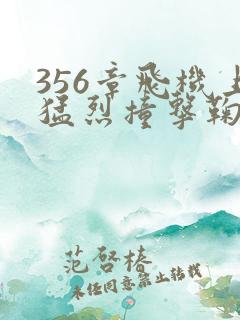 356章飛機上
猛烈撞擊鞠
范啓椿
未任同意禁止转载